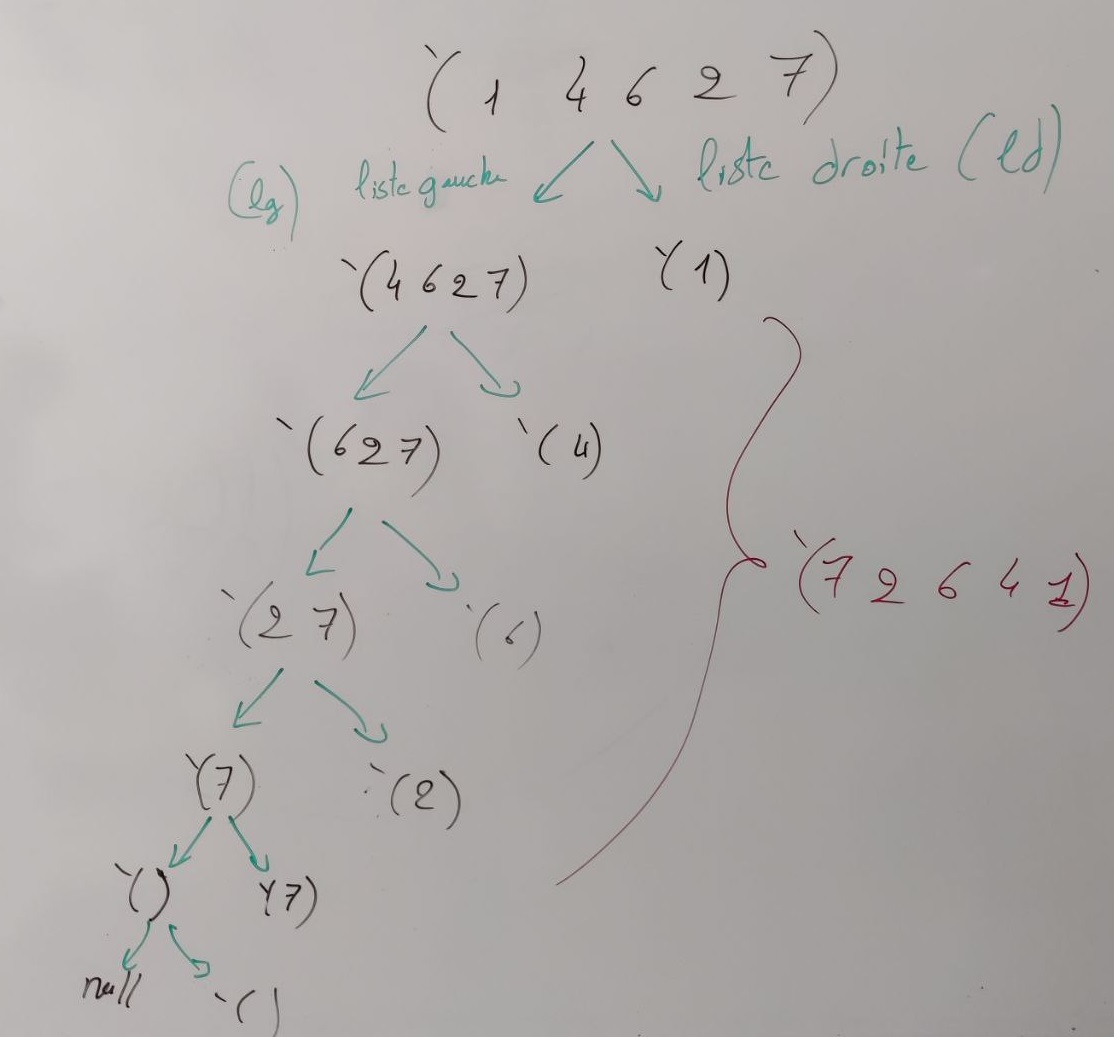 `(1 4 6 2 7)
(lg) liste gauche liste droite (ld)
`(4 6 2 7) `(1)
`(6 2 7) `(4)
`(7 2 6 4 1)
`(2 7) `(6)
`(7) `(2)
`() `(7)
null `()